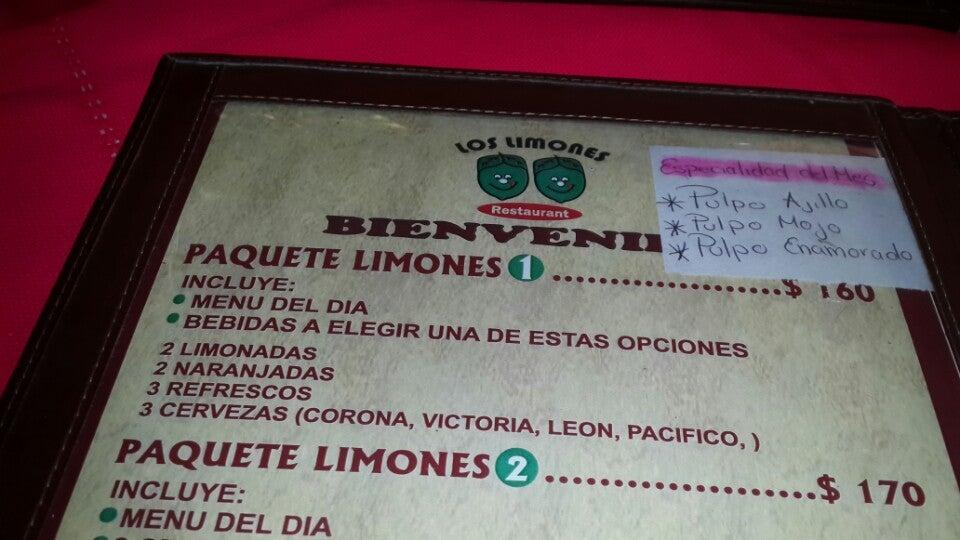 LOS LIMONES
Restaurant
Especialidad del Mes
* Pulpo Ajillo
* Pulpo Mojo
* Pulpo Enamorado
PAQUETE LIMONES 1 ........................$ 160
INCLUYE:
• MENU DEL DIA
• BEBIDAS A ELEGIR UNA DE ESTAS OPCIONES
2 LIMONADAS
2 NARANJADAS
3 REFRESCOS
3 CERVEZAS (CORONA, VICTORIA, LEON, PACIFICO, )
PAQUETE LIMONES 2 ........................$ 170
INCLUYE:
• MENU DEL DIA